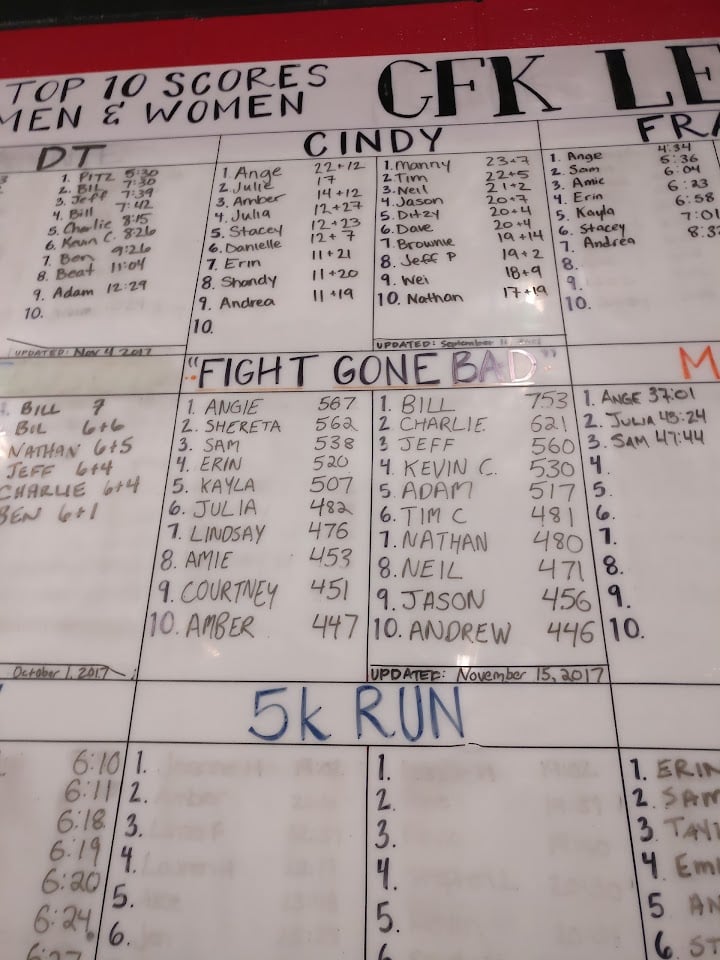 TOP 10 SCORES
MEN & WOMEN
CFK LE
DT
1. PITZ 5:30
2. Bill 7:30
3. Jeff 7:39
4. Bill 7:42
5. Charlie 8:15
6. Kevin C. 8:26
7. Ben 9:26
8. Beat 11:04
9. Adam 12:29
10.
UPDATED: Nov 4 2017
CINDY
1. Ange 22+12
2. Julie 17
3. Amber 14+12
4. Julia 12+27
5. Stacey 12+23
6. Danielle 12+7
7. Erin 11+21
8. Shandy 11+20
9. Andrea 11+19
10.
1. Manny 23+7
2. Tim 22+5
3. Neil 21+2
4. Jason 20+7
5. Ditzy 20+4
6. Dave 20+4
7. Brownie 19+14
8. Jeff P 19+2
9. Wei 18+9
10. Nathan 17+19
UPDATED: September
FRA
4:34
1. Ange 5:36
2. Sam 6:04
3. Amie 6:23
4. Erin 6:58
5. Kayla 7:01
6. Stacey 8:3
7. Andrea
8.
9.
10.
BILL 7
BIL 6+6
NATHAN 6+5
JEFF 6+4
CHARLIE 6+4
BEN 6+1
October 1, 2017
"FIGHT GONE BAD"
1. ANGIE 567
2. SHERETA 562
3. SAM 538
4. ERIN 520
5. KAYLA 507
6. JULIA 482
7. LINDSAY 476
8. AMIE 453
9. COURTNEY 451
10. AMBER 447
1. BILL 753
2. CHARLIE 621
3 JEFF 560
4. KEVIN C. 530
5. ADAM 517
6. TIM C 481
7. NATHAN 480
8. NEIL 471
9. JASON 456
10. ANDREW 446
UPDATED: November 15, 2017
M
1. ANGE 37:01
2. JULIA 45:24
3. SAM 47:44
4.
5.
6.
7.
8.
9.
10.
6:10
6:11
6:18
6:19
6:20
6:24
6:27
5K RUN
1.
2.
3.
4.
5.
6.
1.
2.
3.
4.
5.
6.
1. ERIN
2. SAM
3. TAYL
4. Em
5 AN
6. ST